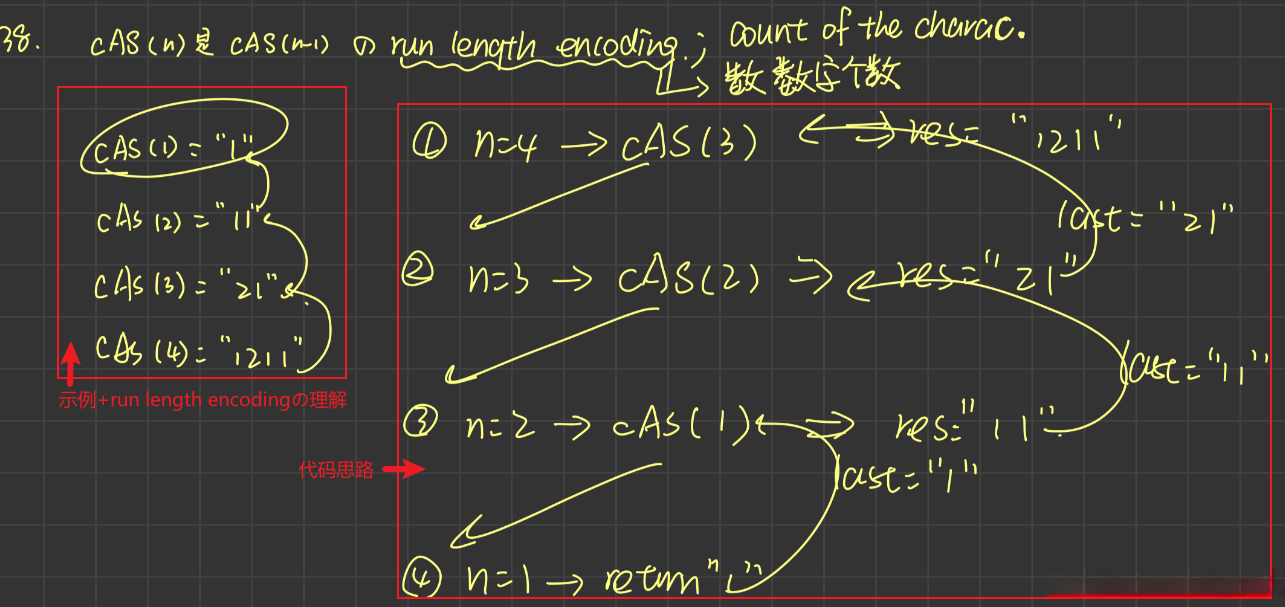 38. cAS(n)是 cAS(n-1) の run length encoding.; count of the charac.
数数字个数
cAS(1) = "1"
cAS(2) = "11"
cAS(3) = "21"
cAS(4) = "1211"
示例+run length encodingの理解
① n=4 → cAS(3) ⇒ res= "1211"
last = "21"
② n=3 → cAS(2) ⇒ res="21"
last="11"
③ n=2 → cAS(1) ⇒ res="11"
last="1"
代码思路
④ n=1 → return "1"